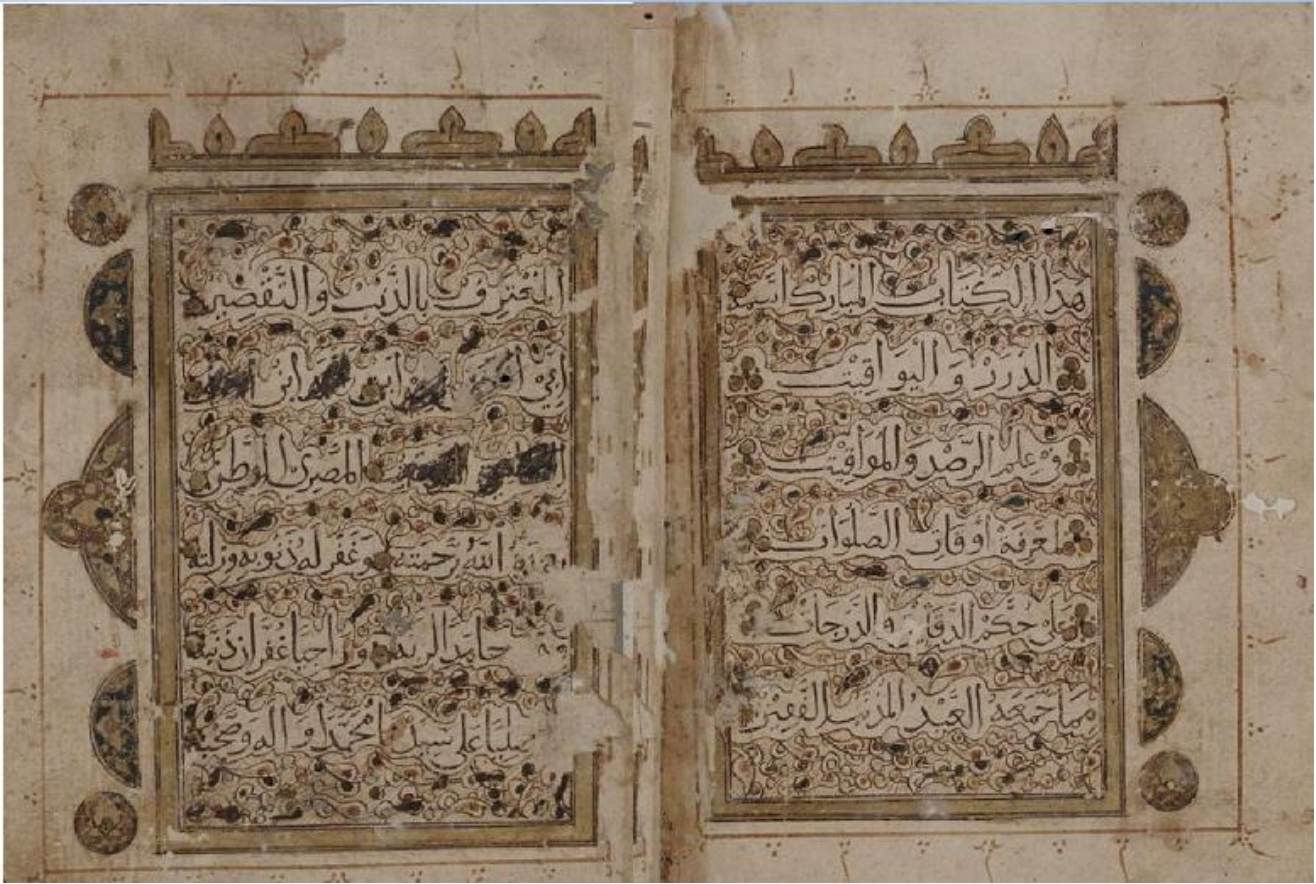 هذا الكتاب المبارك اسمه
الدرر واليواقيت
في علم الرصد والمواقيت
لمعرفة اوقات الصلوات
على حكم الدقائق والدرجات
مما جمعه العبد المذنب الفقير
المعترف بالذنب والتقصير
ابن ابن
المصري الوطن
الله برحمته وغفر له ذنوبه وزلته
حامدا لربه وراجيا غفران ذنبه
على سيدنا محمد واله وصحبه